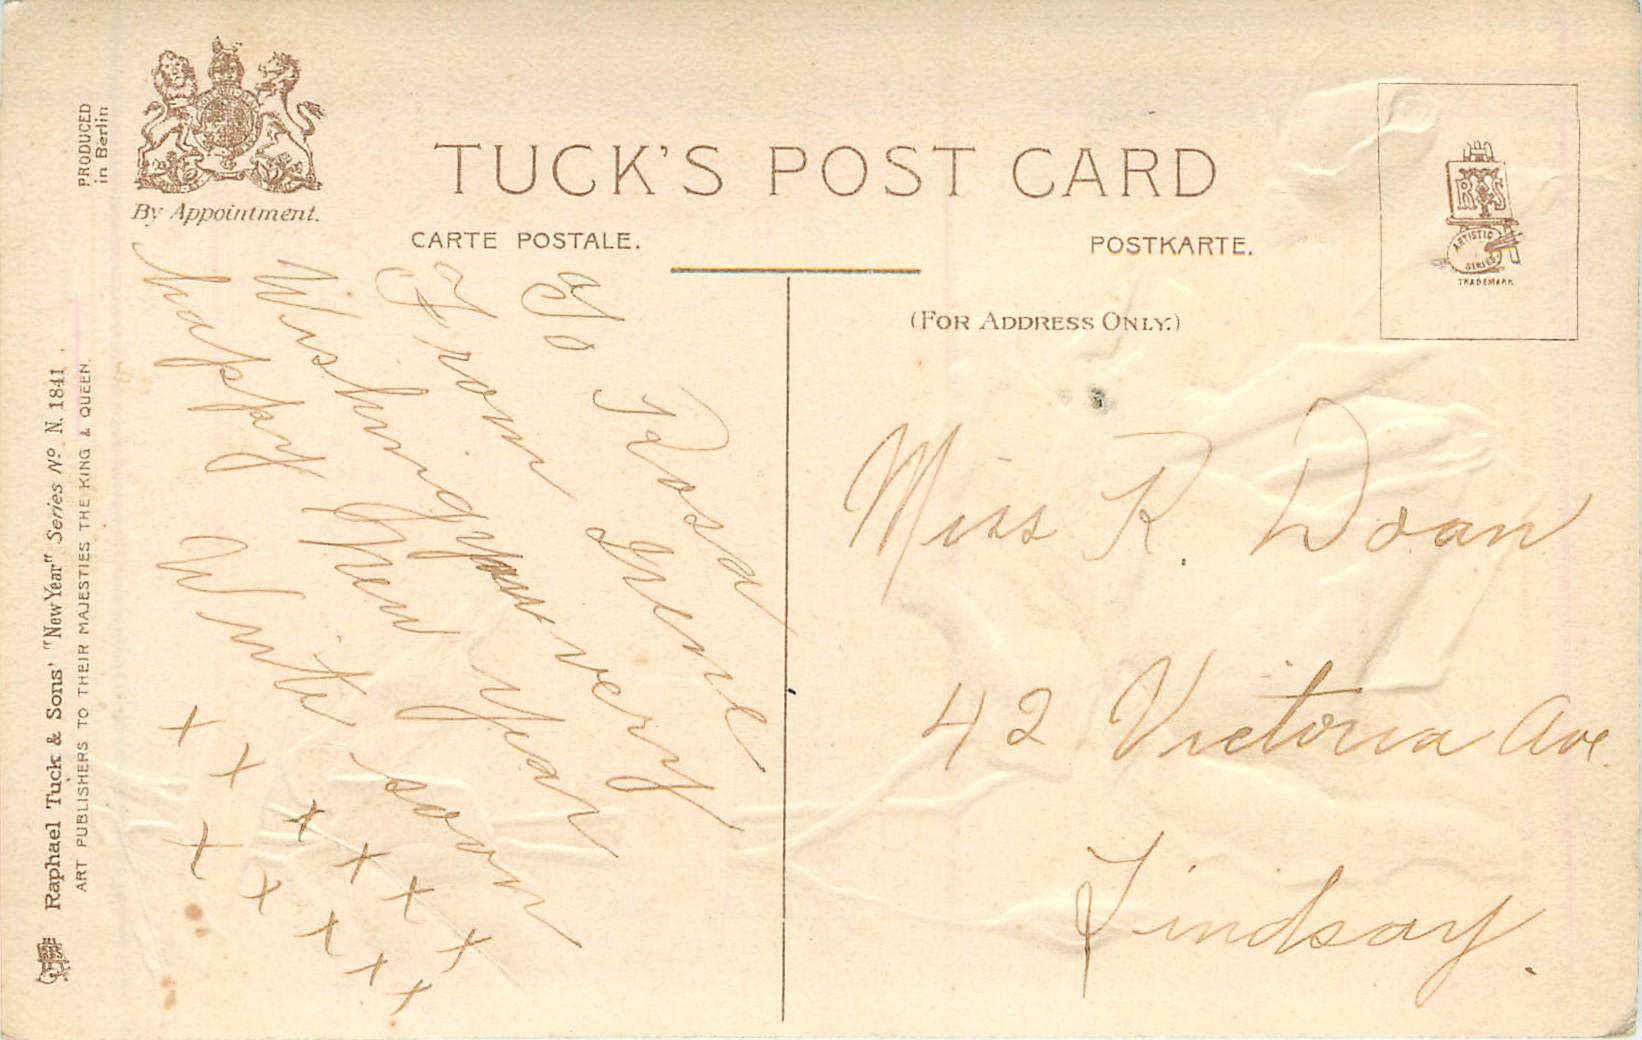 PRODUCED
in Berlin
By Appointment.
TUCK'S POST CARD
CARTE POSTALE.
POSTKARTE.
(FOR ADDRESS ONLY.)
RTS
ARTISTIC
SERIES
TRADEMARK
Raphael Tuck & Sons' "New Year" Series No. N. 1841.
ART PUBLISHERS TO THEIR MAJESTIES THE KING & QUEEN.
To Rosa
From Irene
Wishing you very
happy New Year
Write soon
+ + + + + +
+ + + + +
Miss R. Doan
42 Victoria Ave.
Lindsay.